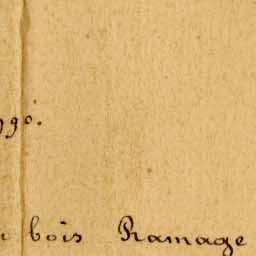 90.
bois Ramage